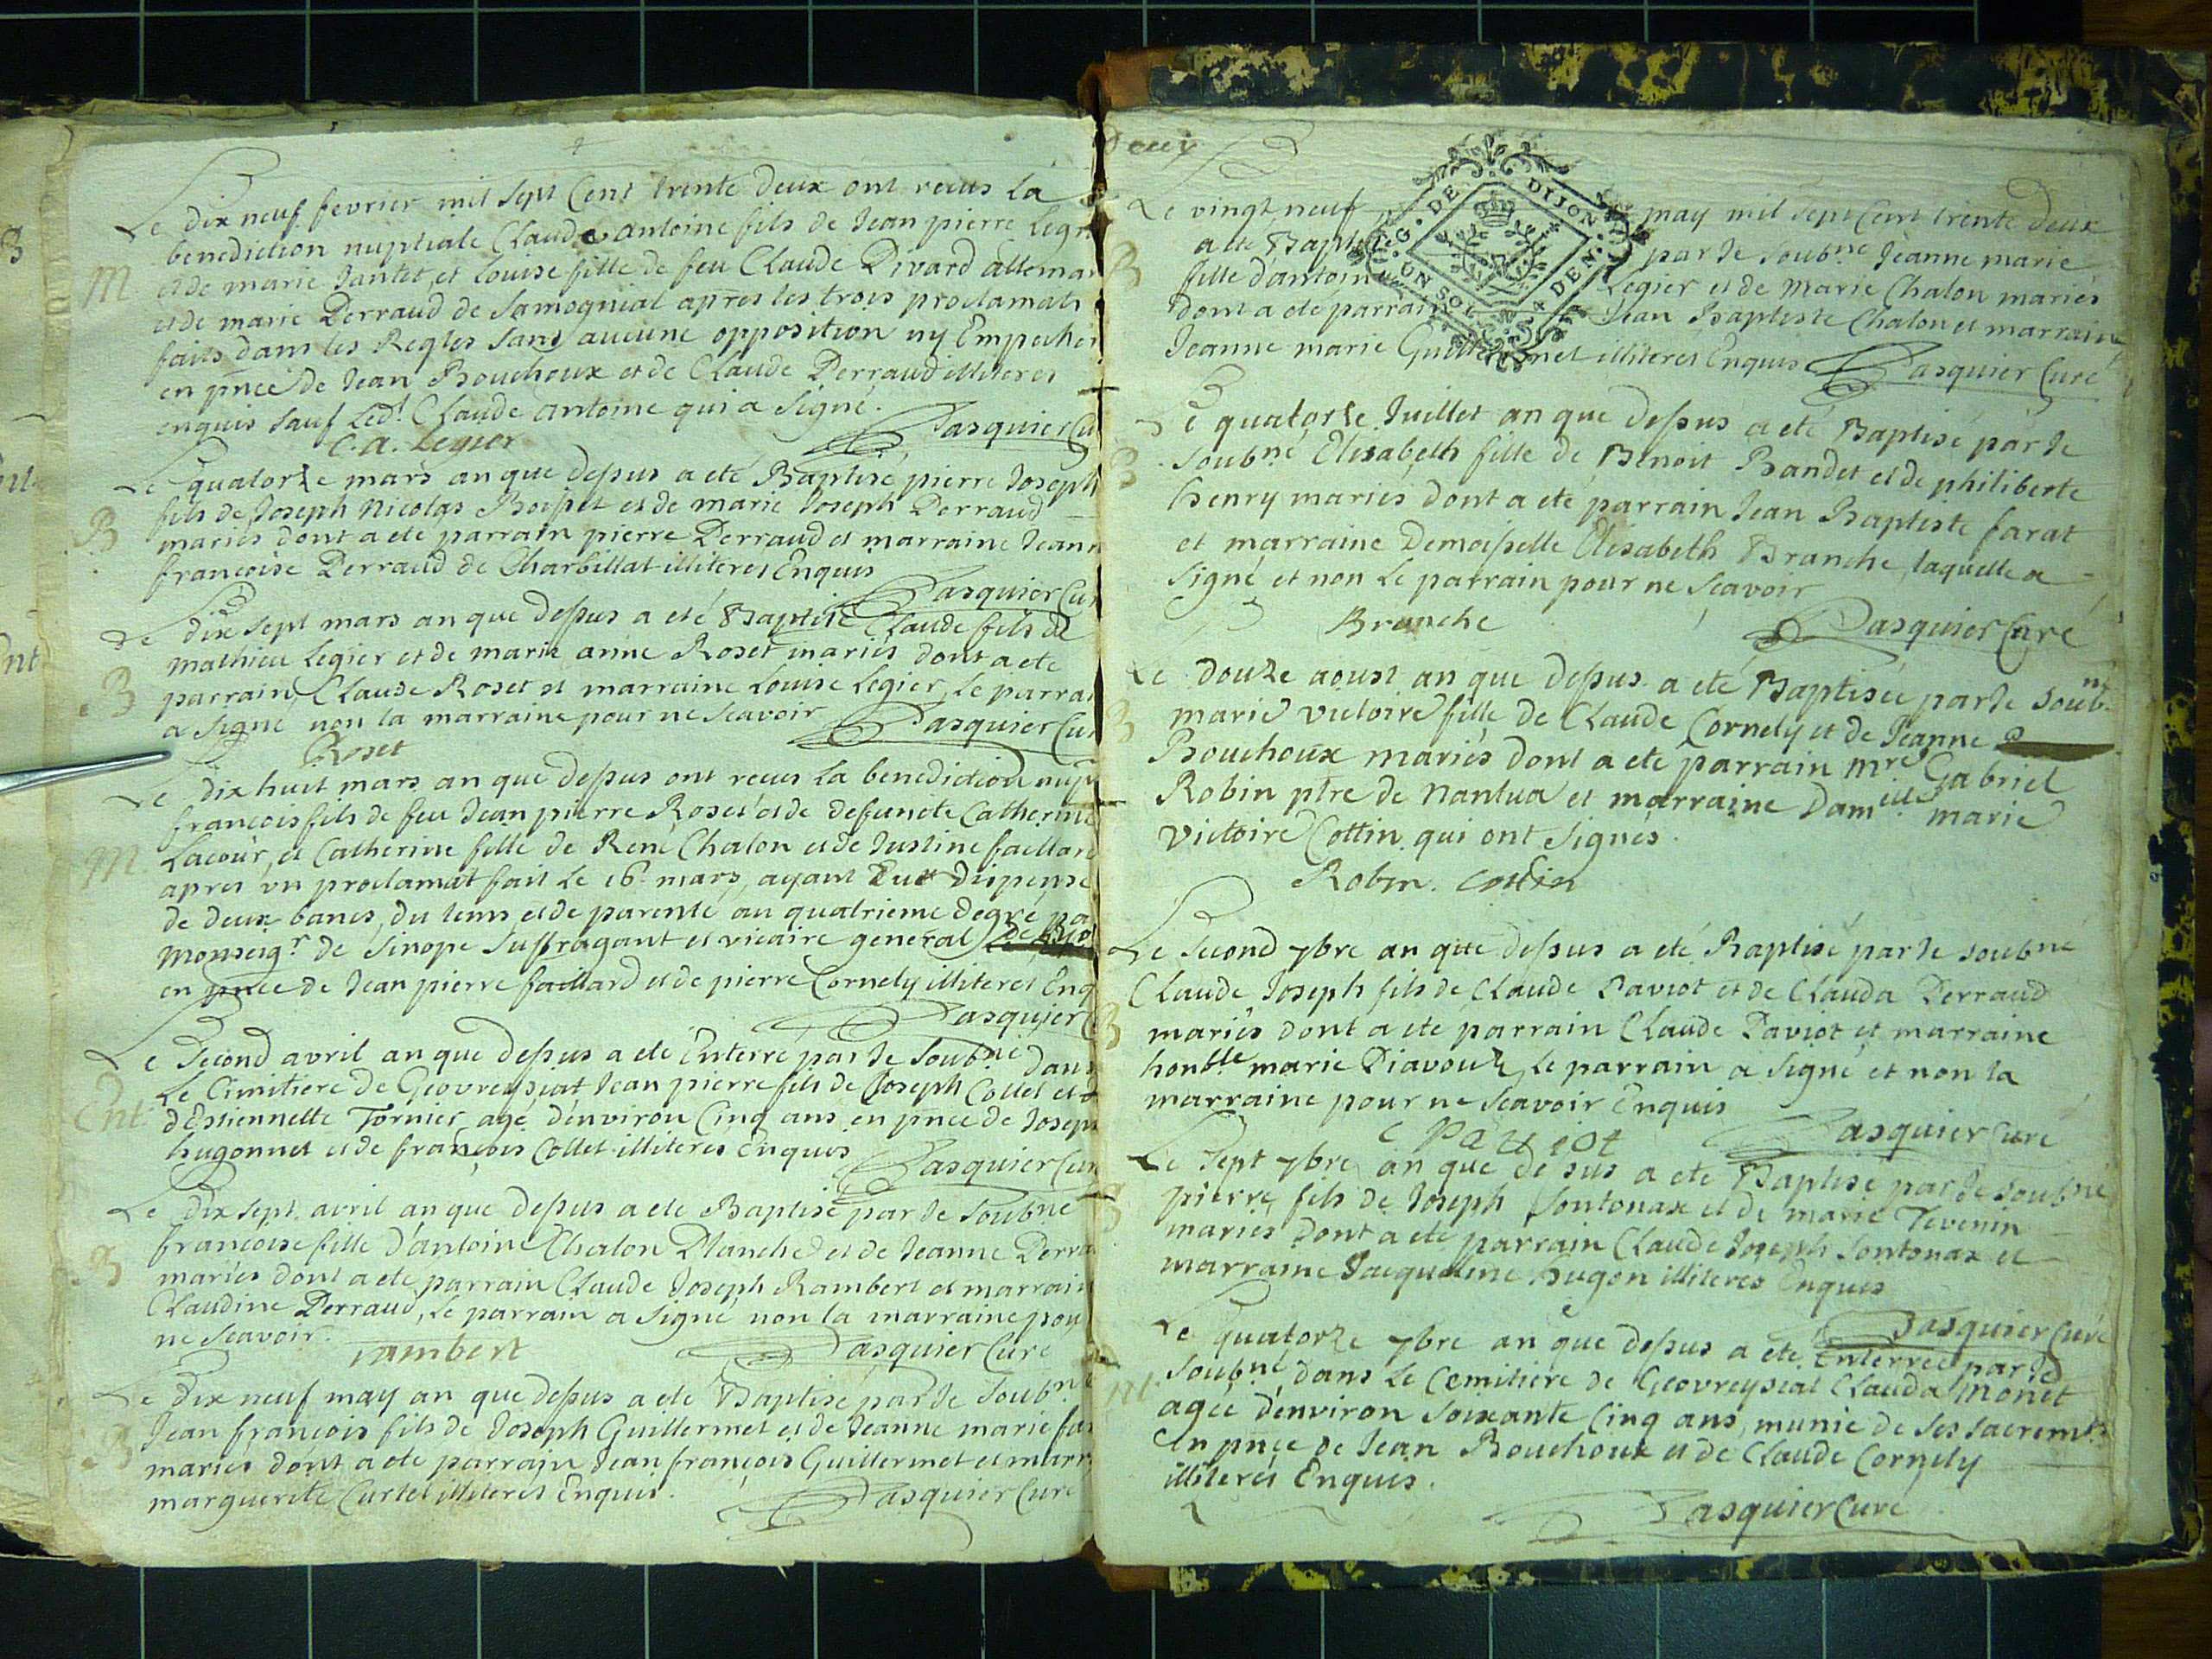 Le dix neuf fevrier mil sept Cent trente deux ont receus la
benediction nuptiale Claude antoine fils de Jean pierre Legi
M et de marie Jantet, et Louise fille de feu Claude Divard alleman
et de marie Perraud de Samogniat après les trois proclamats
faits dans les Regles sans aucune opposition ny Empeche
en pnce de Jean Bouchoux et de Claude Perraud illiteres
enquis sauf Led.t Claude antoine qui a signé.
C. a. Legier Pasquier Cu
Le quatorze mars an que dessus a eté Baptisé pierre Joseph
fils de Joseph Nicolas Boisset et de marie Joseph Perraud
B mariés dont a eté parrain pierre Perraud et marraine Jeann
françoise Perraud de Charbillat illiteres Enquis
Pasquier Cur
Le dix sept mars an que dessus a eté Baptisé Claude fils de
mathieu Legier et de marie anne Roset mariés dont a eté
B parrain Claude Roset et marraine Louise Legier, Le parrai
a signé non la marraine pour ne scavoir Pasquier Cur
Roset
Le dix huit mars an que dessus ont receus la benediction nup
françois fils de feu Jean pierre Roset et de defuncte Catherine
M Lacour, et Catherine fille de René Chalon et de Justine faillard
apres un proclamat fait Le 16.e mars, ayant Eu Dispense
de deux bancs, du tems et de parenté au quatrieme degré pa
Monseig.r de Sinope Suffragant et vicaire general
en pnce de Jean pierre faillard et de pierre Cornely illiteres Enq
Pasquier C
Le Second avril an que dessus a eté Enterré par Je Soub.né dans
Le Cimitiere de Geovreysiat Jean pierre fils de Joseph Collet et
Ent d'Estiennette Tornier agé d'environ Cinq ans en pnce de Joseph
hugonnet et de françois Collet illiteres Enquis
Pasquier Cur
Le dix sept avril an que dessus a eté Baptisé par Je Soubné
françoise fille d'antoine Chalon Planched et de Jeanne Perra
B mariés dont a eté parrain Claude Joseph Rambert et marrain
Claudine Perraud, Le parrain a signé non la marraine pou
ne Scavoir.
rambert Pasquier Curé
Le Dix neuf may an que dessus a eté Baptisé par Je Soubn
Jean françois fils de Joseph Guillermet et de Jeanne marie fa
B mariés dont a eté parrain Jean françois Guillermet et marr
marguerite Curtel illiteres Enquis.
Pasquier Curé
Deux
G. DE DIJON
UN SOL 4 DEN.
Le vingt neuf may mil sept Cent trente deux
a ete Baptisé par Je soub.ne Jeanne marie
B fille d'antoine Legier et de Marie Chalon mariés
dont a eté parrain Jean Baptiste Chalon et marraine
Jeanne marie Guillermet illiteres Enquis Pasquier Curé
Le quatorze Juillet an que dessus a eté Baptisé par Je
B Soubné Elisabeth fille de Benoit Bandet et de philiberte
henry mariés dont a eté parrain Jean Baptiste farat
et marraine Demoiselle Elisabeth Branche, laquelle a
signé et non Le parrain pour ne scavoir
Branche Pasquier Curé
Le Douze aoust an que dessus a eté Baptisée par Je soub.né
B marie victoire fille de Claude Cornely et de Jeanne
Bouchoux mariés dont a eté parrain m.re Gabriel
Robin ptre de Nantua et marraine Dam.elle marie
victoire Cottin qui ont signés.
Robin. Cottin
Le Second 7bre an que dessus a eté Baptisé par Je soubné
Claude Joseph fils de Claude Paviot et de Clauda Perraud
B mariés dont a eté parrain Claude Paviot et marraine
hon.ble marie Piavoux, Le parrain a signé et non la
marraine pour ne Scavoir Enquis
C paviot Pasquier Curé
Le Sept 7bre an que de sus a ete Baptisé par Je soubné
B pierre fils de Joseph Sontonax et de marie Tevenin
mariés dont a eté parrain Claude Joseph Sontonax et
marraine Jacqueline hugon illiteres Enquis
Pasquier Curé
Le quatorze 7bre an que dessus a eté Enterrée par Je
Soubné dans Le Cemitiere de Geovreysiat Clauda Monet
agée d'environ soixante Cinq ans, munie de ses sacrem.ts
En pnce de Jean Bouchoux et de Claude Cornely
illiterés Enquis.
Pasquier Curé